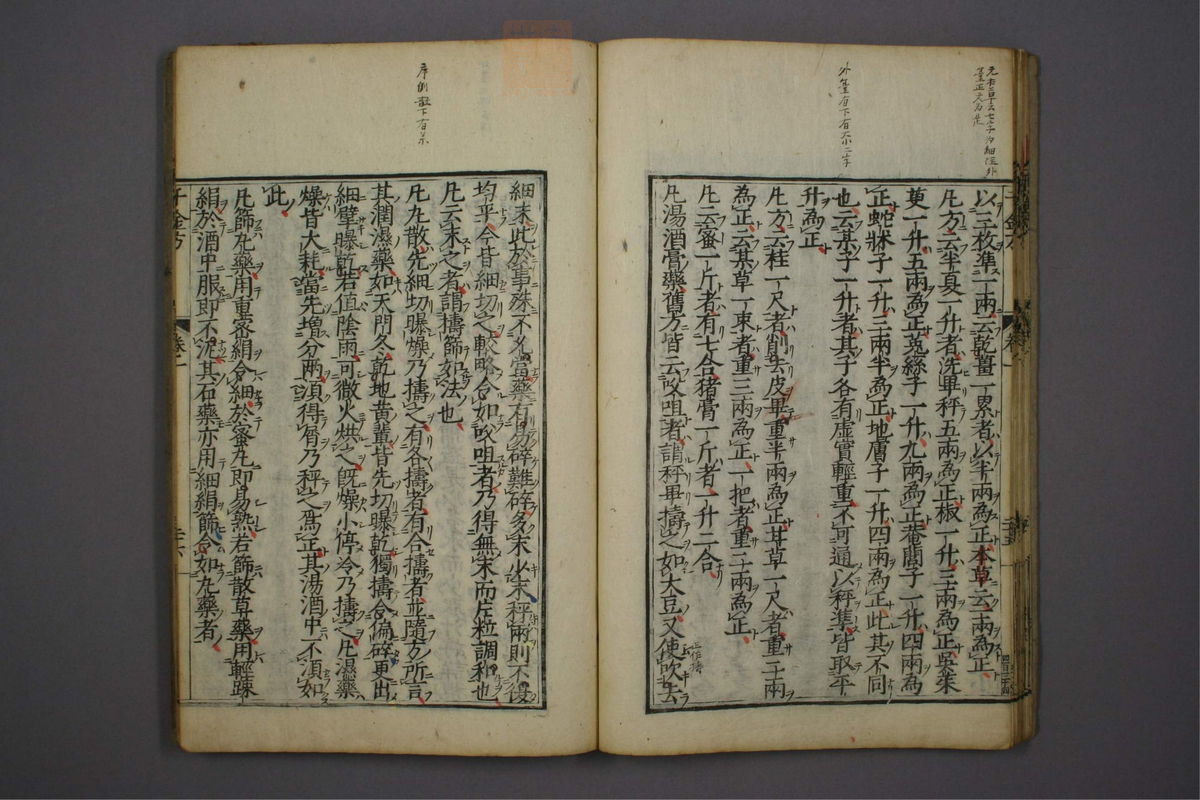 以三枚準一兩云乾薑一累者以半兩為正本草云一兩為正
凡方云半夏一升者洗畢秤五兩為正椒一升三兩為正吳茱
萸一升五兩為正菟絲子一升九兩為正菴䕡子一升四兩為
正蛇牀子一升三兩半為正地膚子一升四兩為正此其不同
也云某子一升者其子各有虛實輕重不可通以秤準皆取平
升為正
凡方云桂一尺者削去皮畢重半兩為正甘草一尺者重二兩
為正云某草一束者重三兩為正一把者重二兩為正
凡云蜜一斤者有七合猪膏一斤者一升二合
凡湯酒膏藥舊方皆云㕮咀者謂秤畢擣之如大豆又使吹去
細末此於事殊不允當藥有易碎難碎多末少末秤兩則不復
均平今皆細切之較略令如㕮咀者乃得無末而片粒調和也
凡云末之者謂擣篩如法也
凡丸散先細切曝燥乃擣之有各擣者有合擣者並隨方所言
其潤濕藥如天門冬乾地黃輩皆先切曝乾獨擣令偏碎更出
細擘曝乾若值陰雨可微火烘之既燥小停冷乃擣之凡濕藥
燥皆大耗當先增分兩須得屑乃秤之為正其湯酒中不須如
此
凡篩丸藥用重密絹令細於蜜丸即易熟若篩散草藥用輕疎
絹於酒中服即不泥其石藥亦用細絹篩令如丸藥者
千金方
卷一
序例散下有等
外臺有下有大小二字